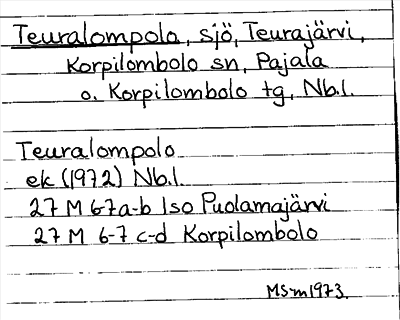 Teuralompolo, sjö, Teurajärvi,
Korpilombolo sn, Pajala
o. Korpilombolo tg, Nb.l.
Teuralompolo
ek (1972) Nb.l.
27 M 6-7a-b Iso Puolamajärvi
27 M 6-7 c-d Korpilombolo
MS-m 1973.